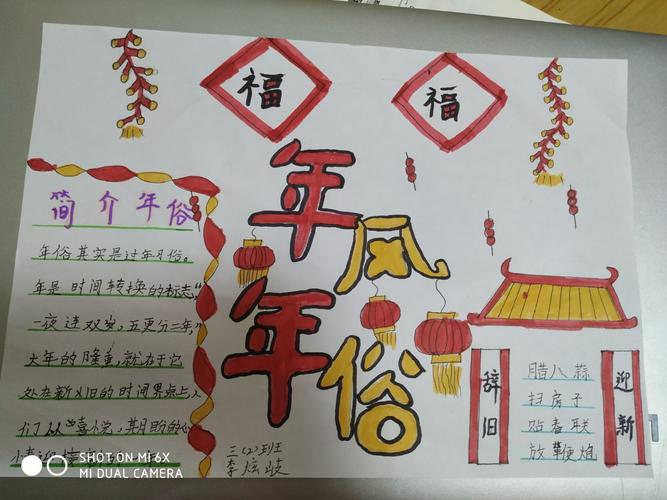 福
福
年风
年俗
简介年俗
年俗其实是过年习俗。
年是时间转换的标志,“
一夜连双岁,五更分二年,”
大年的隆重,就在于它
处在新又旧的时间界点上,
们从“喜小
腊八蒜
扫房子
贴春联
放鞭炮
辞旧
迎新
三(2)班
李炫岐
SHOT ON MI 6X
MI DUAL CAMERA